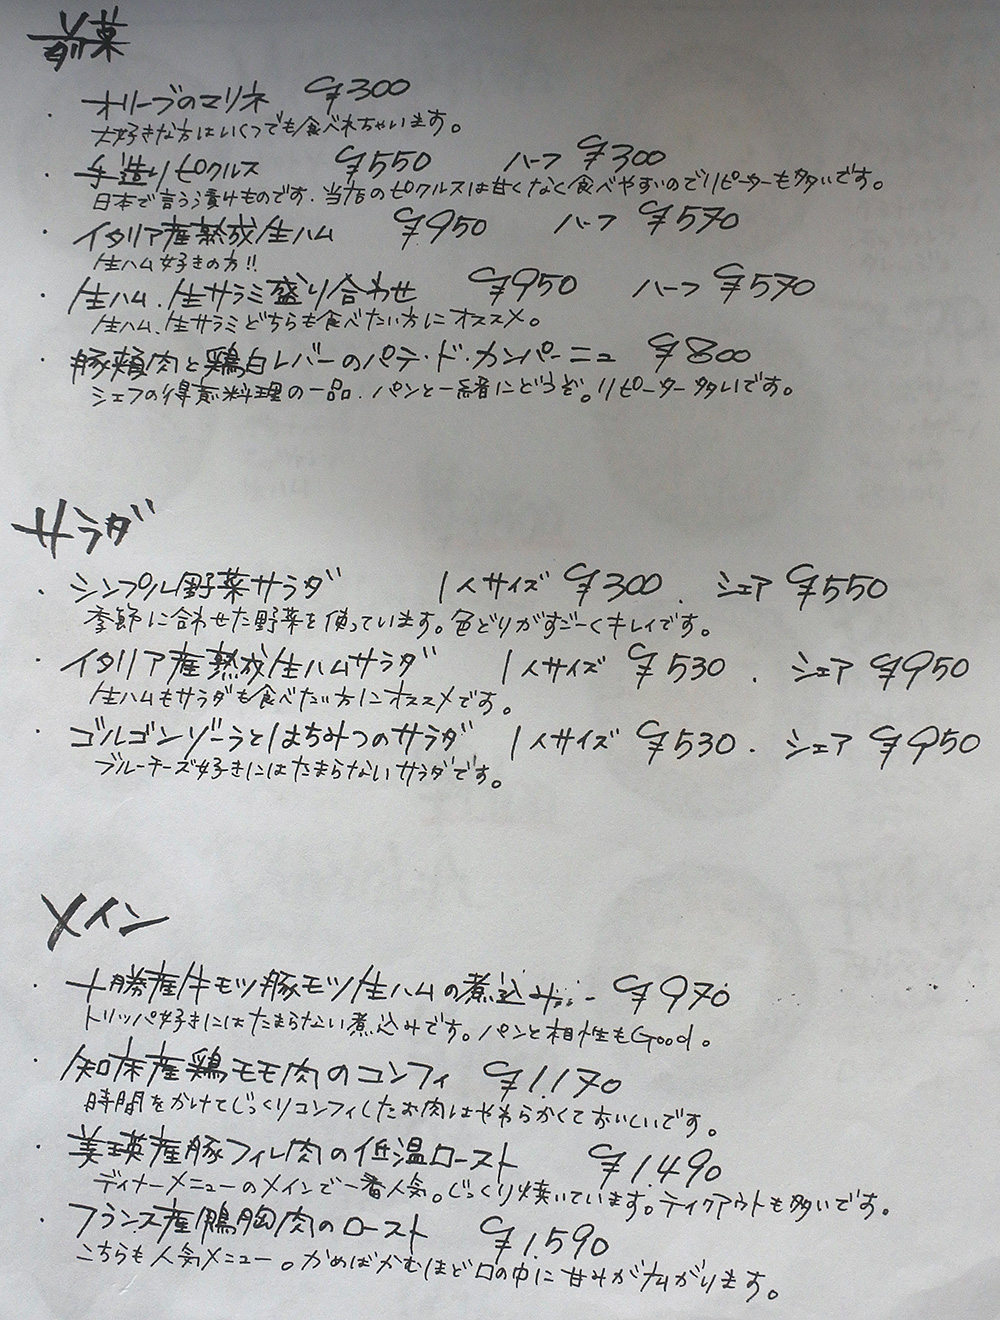 前菜
・オリーブのマリネ ¥300
大好きな方はいくつでも食べれちゃいます。
・手造りピクルス ¥550 ハーフ ¥300
日本で言うう漬けものです.当店のピクルスは甘くなく食べやすいのでリピーターも多いです。
・イタリア産熟成生ハム ¥950 ハーフ ¥570
生ハム好きの方!!
・生ハム、生サラミ盛り合わせ ¥950 ハーフ ¥570
生ハム、生サラミどちらも食べたい方にオススメ。
・豚頬肉と鶏白レバーのパテ・ド・カンパーニュ ¥800
シェフの得意料理の一品.パンと一緒にどうぞ。リピーター多いです。
サラダ
・シンプル野菜サラダ 1人サイズ ¥300. シェア ¥550
季節に合わせた野菜を使っています。色どりがすごーくキレイです。
・イタリア産熟成生ハムサラダ 1人サイズ ¥530. シェア ¥950
生ハムもサラダも食べたい方にオススメです。
・ゴルゴンゾーラとはちみつのサラダ 1人サイズ ¥530. シェア ¥950
ブルーチーズ好きにはたまらないサラダです。
メイン
・十勝産牛モツ豚モツ生ハムの煮込み... ¥970
トリッパ好きにはたまらない煮込みです。パンと相性もGood。
・知床産鶏モモ肉のコンフィ ¥1.170
時間をかけてじっくりコンフィしたお肉はやわらかくておいしいです。
・美瑛産豚フィレ肉の低温ロースト ¥1.490
ディナーメニューのメインで一番人気。じっくり焼いています。テイクアウトも多いです。
・フランス産鴨胸肉のロースト ¥1.590
こちらも人気メニュー。かめばかむほど口の中に甘みが広がります。